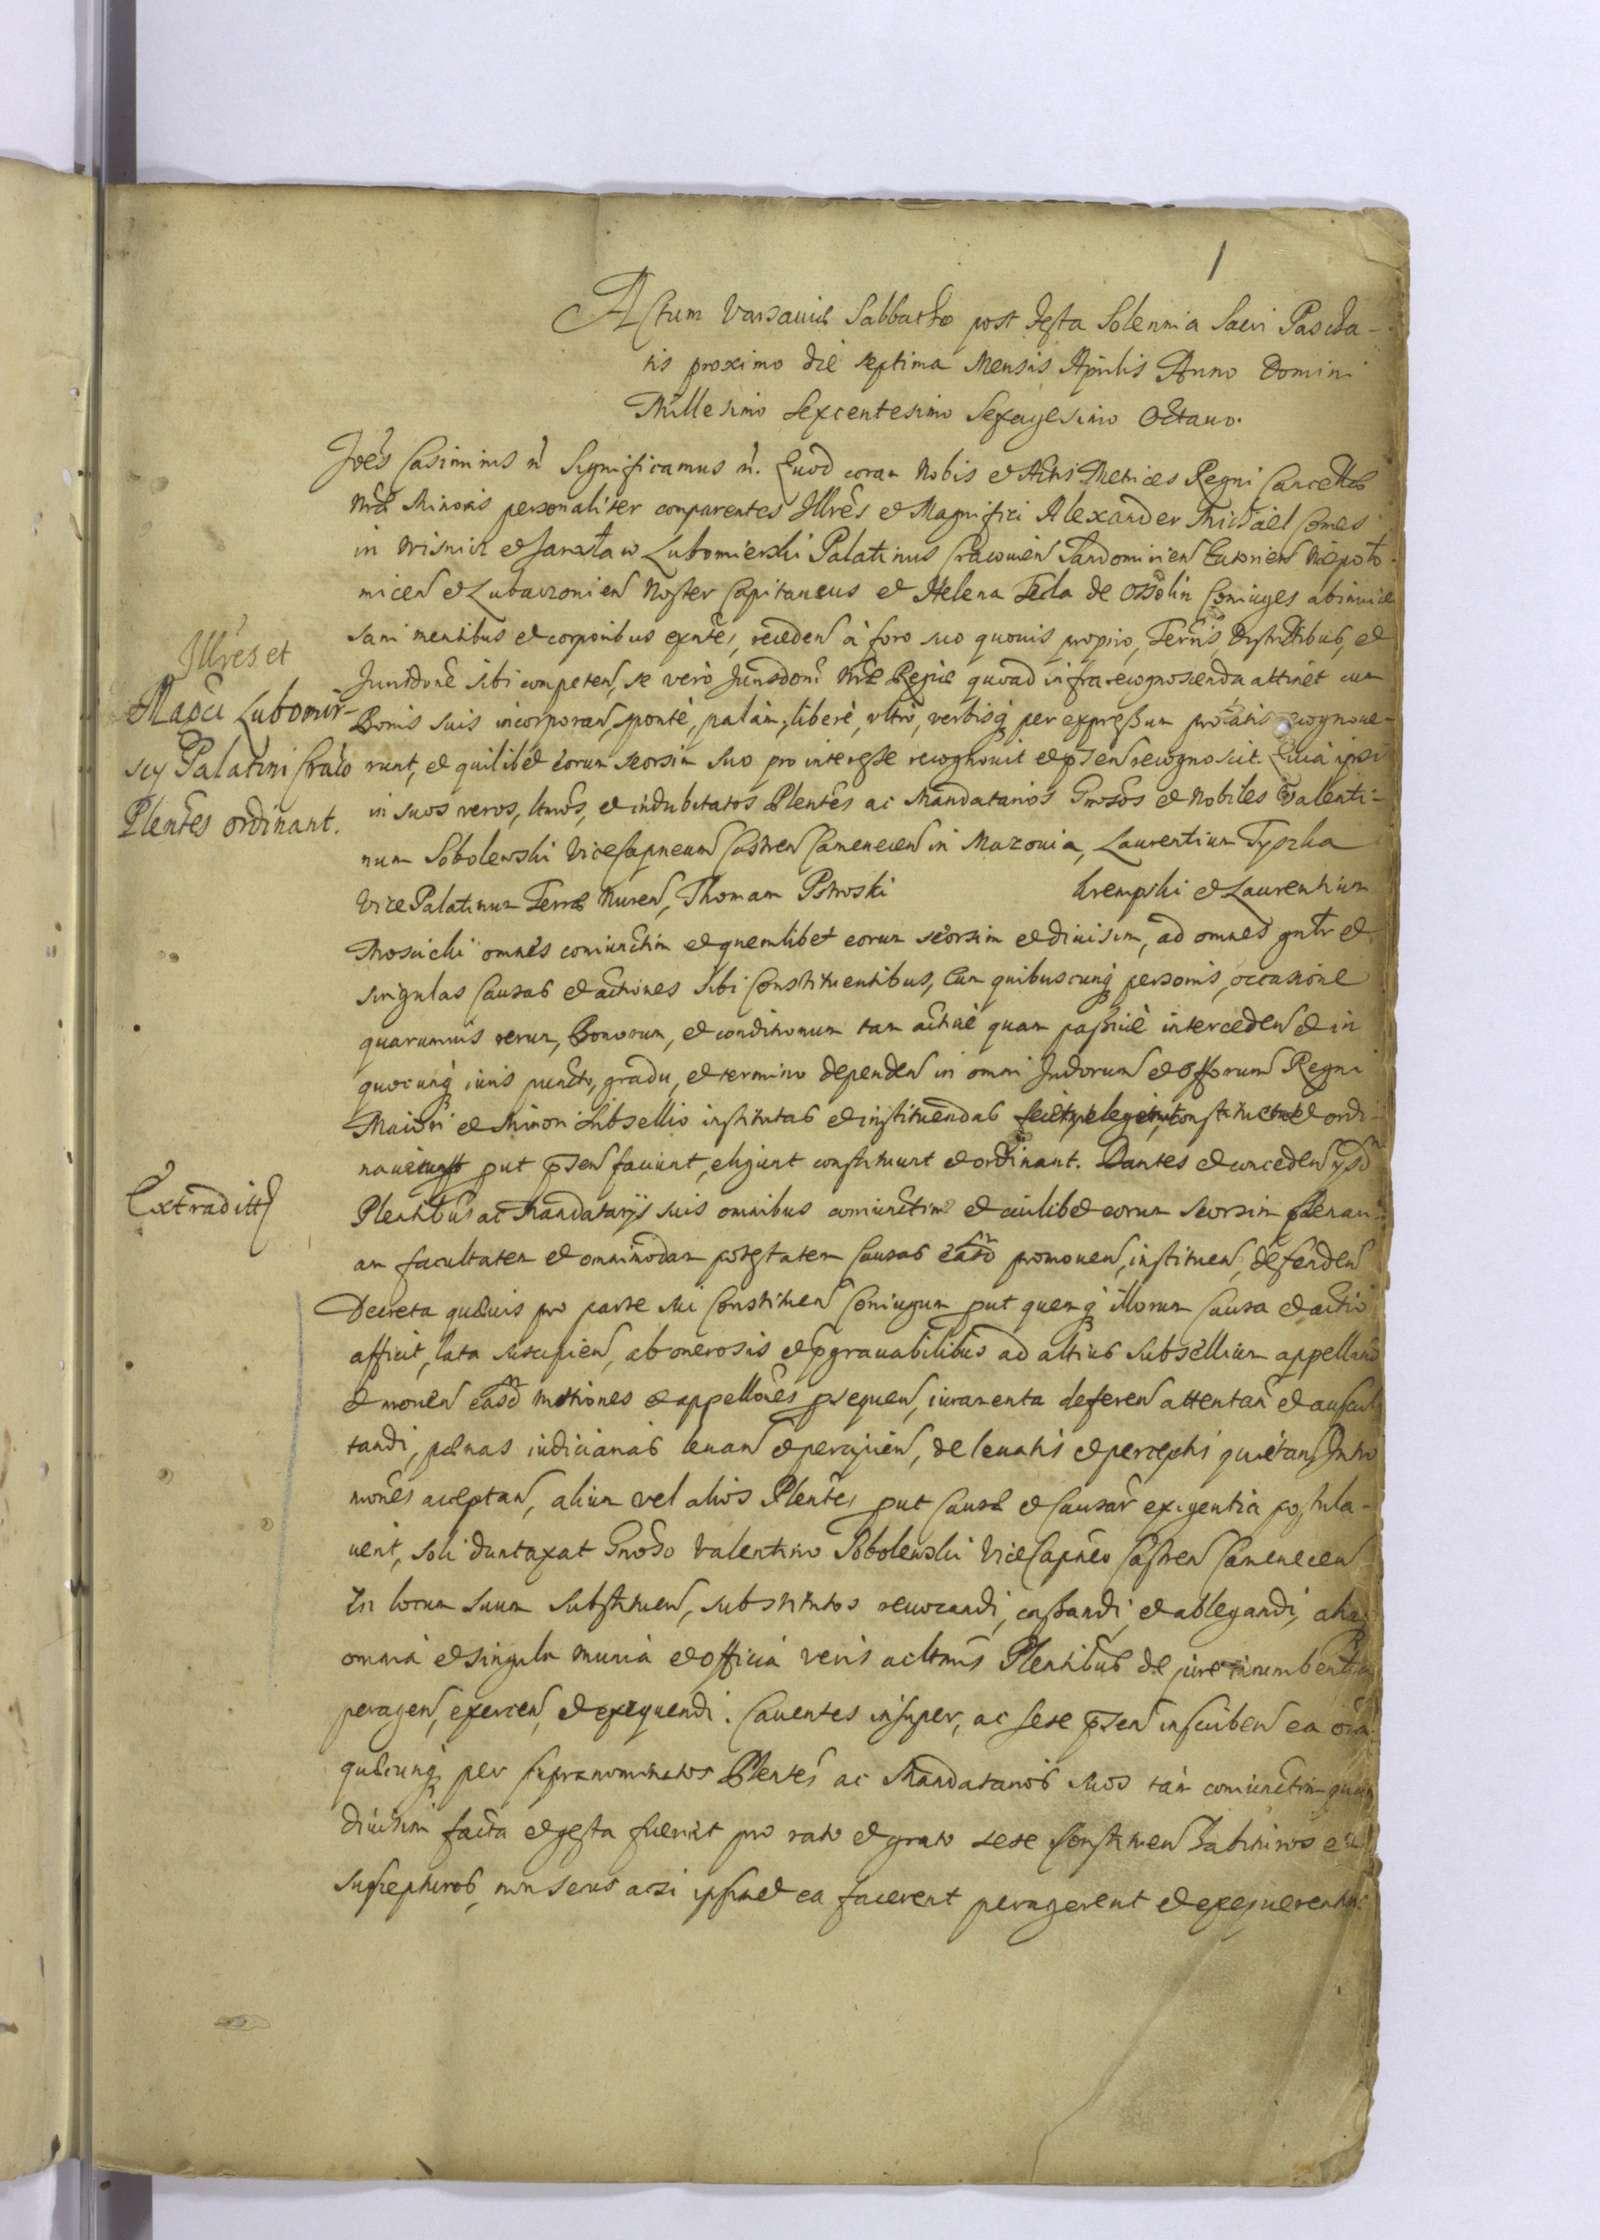 1
Actum Varsaviæ Sabbatho post Festa Solennia Sacri Pascha-
tis proximo die septima Mensis Aprilis Anno Domini
Millesimo Sexcentesimo Sexagesimo Octavo.
Joẽs Casimirus ñ Significamus ñ. Quod coram Nobis et Actis Metrices Regni Cancellæ
Nræ Minoris personaliter comparentes Illres et Magnifici Alexander Michael Comes
in Wisnicz et Jarosław Lubomierski Palatinus Cracovien Sandomirien Niepoło-
micen et Lubaczovien Noster Capitaneus et Helena Tecla de Ossolin Coniuges abinuice
sani mentibus et corporibus exntes, receden à foro suo quovis proprio, Terris Districtibus, et
Jurisdone sibi competen, se verò Jurisdoni Nræ Regiæ quoad infrarecognoscenda attinet cum
Bonis suis incorporan, sponte, palàm, liberè, ultrò, verbisq per expressum prolatis recognoue-
runt, et quilibet eorum seorsim suo pro interesse recognouit et psen recognoscit. Quia ipsi
in suos veros, ltmos, et indubitatos Plentes ac Mandatarios Gnosos et Nobiles Valenti-
num Sobolewski ViceCapneum Castren Camenecen in Mazovia, Laurentium Tyszka
Vice Palatinum Terræ Nuren, Thomam Pstroski krempski et Laurentium
Mosicki omnes coniunctim et quemlibet eorum seorsim et divisim, ad omnes gnlr et
singulas Causas et actiones sibi Constituentibus, Cum quibuscunq personis, occasione
quarumvis rerum, Bonorum, et conditionum tam active quam passivè interceden et in
quocunq iuris puncto, gradu, et termino dependen in omni Judiorum et Offorum Regni
Maiori et Minori Subsellio institutas et instituendas constituerunt et ordi-
naverunt put psen faciunt, eligunt constituunt et ordinant. Dantes et conceden ijsdm
Plentibus ac Mandatarijs suis omnibus coniunctim et cuilibet eorum seorsim plenari-
am facultatem et omnimodam potestatem Causas easd promoven, instituen, defenden
Decreta quævis pro parte sui Constituen Coniugum put quemq illorum Causa et actio
afficit, lata suscipien, ab onerosis et pgravabilibus ad altius Subsellium appelland
et moven easd motiones et appellones psequen, iuramenta deferen attentan et auscul
tandi, pœnas iudiciarias levan et percipien, de levatis et perceptis quietan, Intro
mones acceptan, alium vel alios Plentes put Causæ et Causar exigentia postula-
verit, soli duntaxat Gnoso Valentino Sobolewski ViceCapneo Castren Camenecen
In locum suum Substituen, substitutos revocandi, cassandi, et ablegandi, aliaq
omnia et singula munia et officia veris ac ltmis Plentibus de jure incumbentia
peragen, exercen, et exequendi. Caventes insuper, ac sese psen inscriben ea oia
quæcunq per supranominatos Plentes ac Mandatarios suos tàm coniunctim quam
divisim facta et gesta fuerint pro rato et grato sese Constituen habituros et
suscepturos, non secus acsi ipsimet ea facerent peragerent et exequerentur.
Illres et
Magci Lubomir-
scy Palatini Craco
Plentes ordinant.
Extraditt